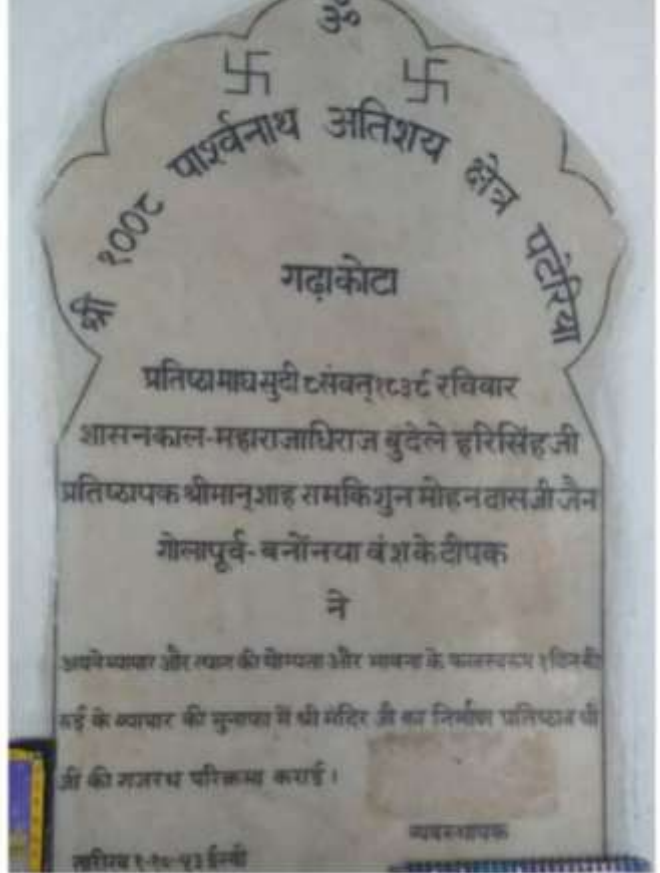 ॐ
श्री १००८ पार्श्वनाथ अतिशय क्षेत्र पटेरिया
गढ़ाकोटा
प्रतिष्ठा माघ सुदी ८ संवत् १८३९ रविवार
शासनकाल-महाराजाधिराज बुंदेले हरिसिंह जी
प्रतिष्ठापक श्रीमान् शाह रामकिशुन मोहनदासजी जैन
गोलापूर्व-बनोंनया बंश के दीपक
ने
अपने व्यापार और त्याग की योग्यता और भावना के फलस्वरूप १ दिन की
रुई के व्यापार की मुनाफा में श्री मंदिर जी का निर्माण प्रतिष्ठा व श्री
जी की गजरथ परिक्रमा कराई।
व्यवस्थापक
तारीख १-१०-५३ ईस्वी